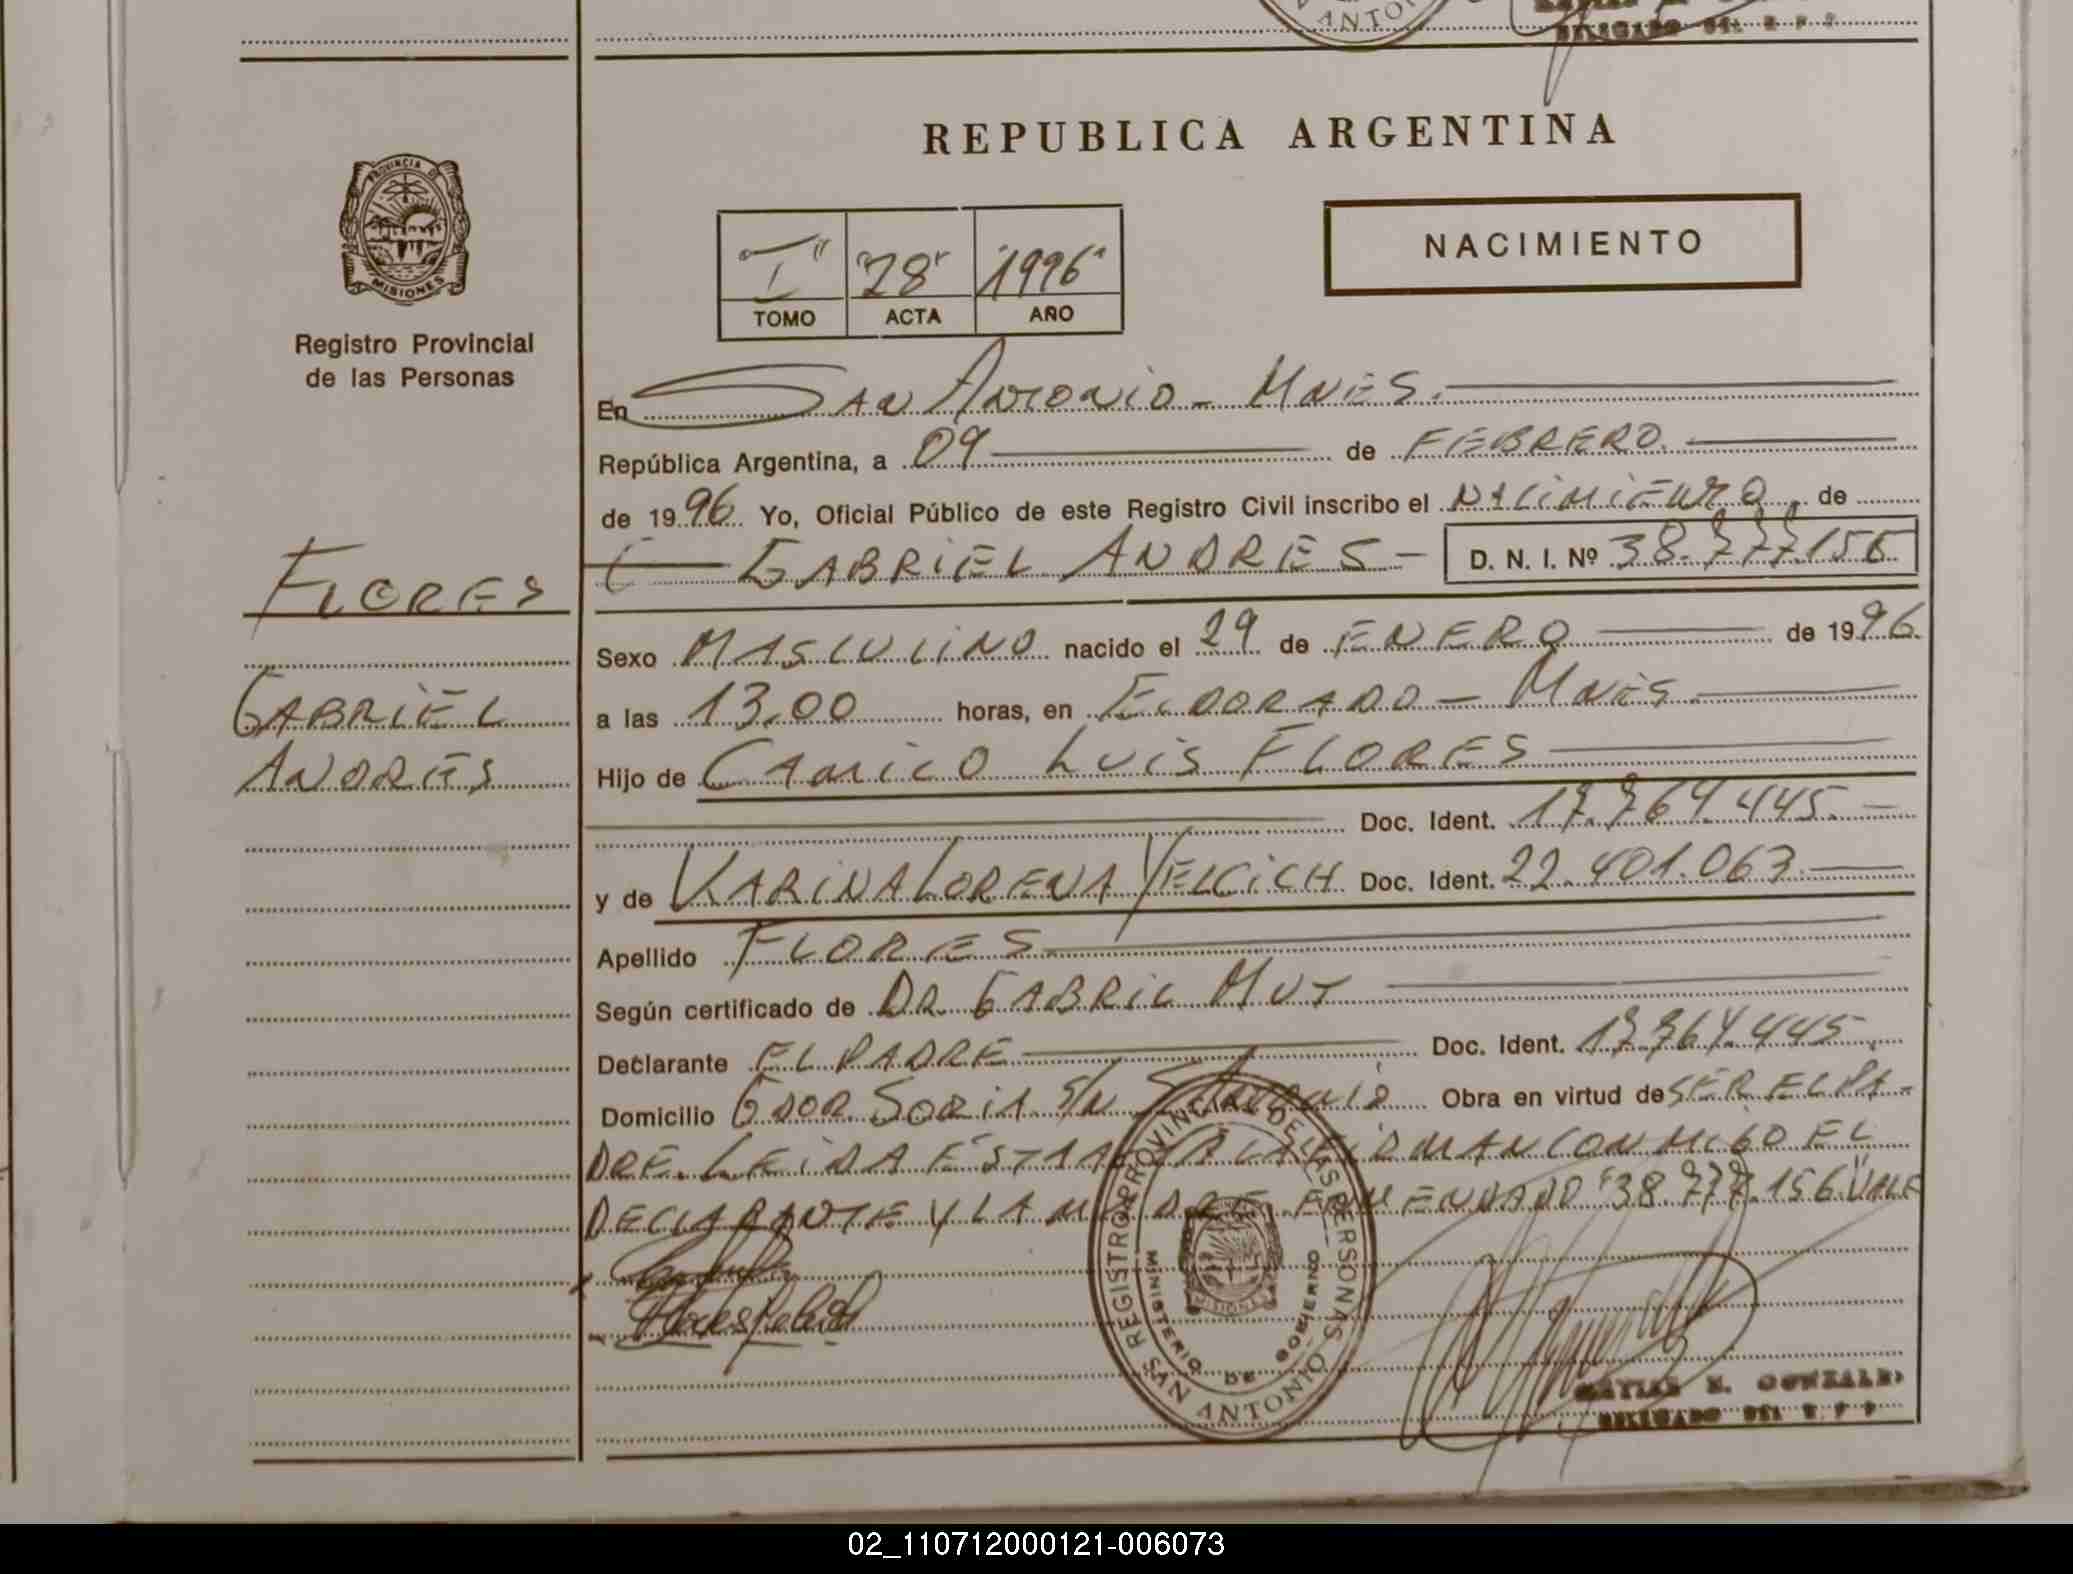 ANTO
DELEGADO DEL R P P
PROVINCIA DE
MISIONES
Registro Provincial
de las Personas
FLORES
GABRIEL
ANDRES
REPUBLICA ARGENTINA
"I" "28" "1996"
TOMO ACTA AÑO
NACIMIENTO
En SAN ANTONIO - MNES.
República Argentina, a 09 de FEBRERO.
de 1996 Yo, Oficial Público de este Registro Civil inscribo el NACIMIENTO, de
GABRIEL ANDRES - D. N. I. Nº 38.777.156
Sexo MASCULINO nacido el 29 de ENERO de 1996.
a las 13,00 horas, en ELDORADO - MNES
Hijo de CAMILO LUIS FLORES
Doc. Ident. 17.764.445.-
y de KARINA LORENA YELCICH Doc. Ident. 22.401.063.
Apellido FLORES
Según certificado de DR. GABRIL MUT
Declarante EL PADRE Doc. Ident. 17.764.445.
Domicilio GDOR SORIA S/N S. ANTONIO Obra en virtud de SER EL PA-
DRE. LEIDA ESTA ACTA LA FIRMAN CONMIGO EL
DECLARANTE Y LA MADRE ENMENDADO "38.777.156" VALE
REGISTRO PROVINCIAL DE LAS PERSONAS
MINISTERIO DE GOBIERNO
MISIONES
SAN ANTONIO
MATIAS N. GONZALEZ
DELEGADO DEL R P P
02_110712000121-006073